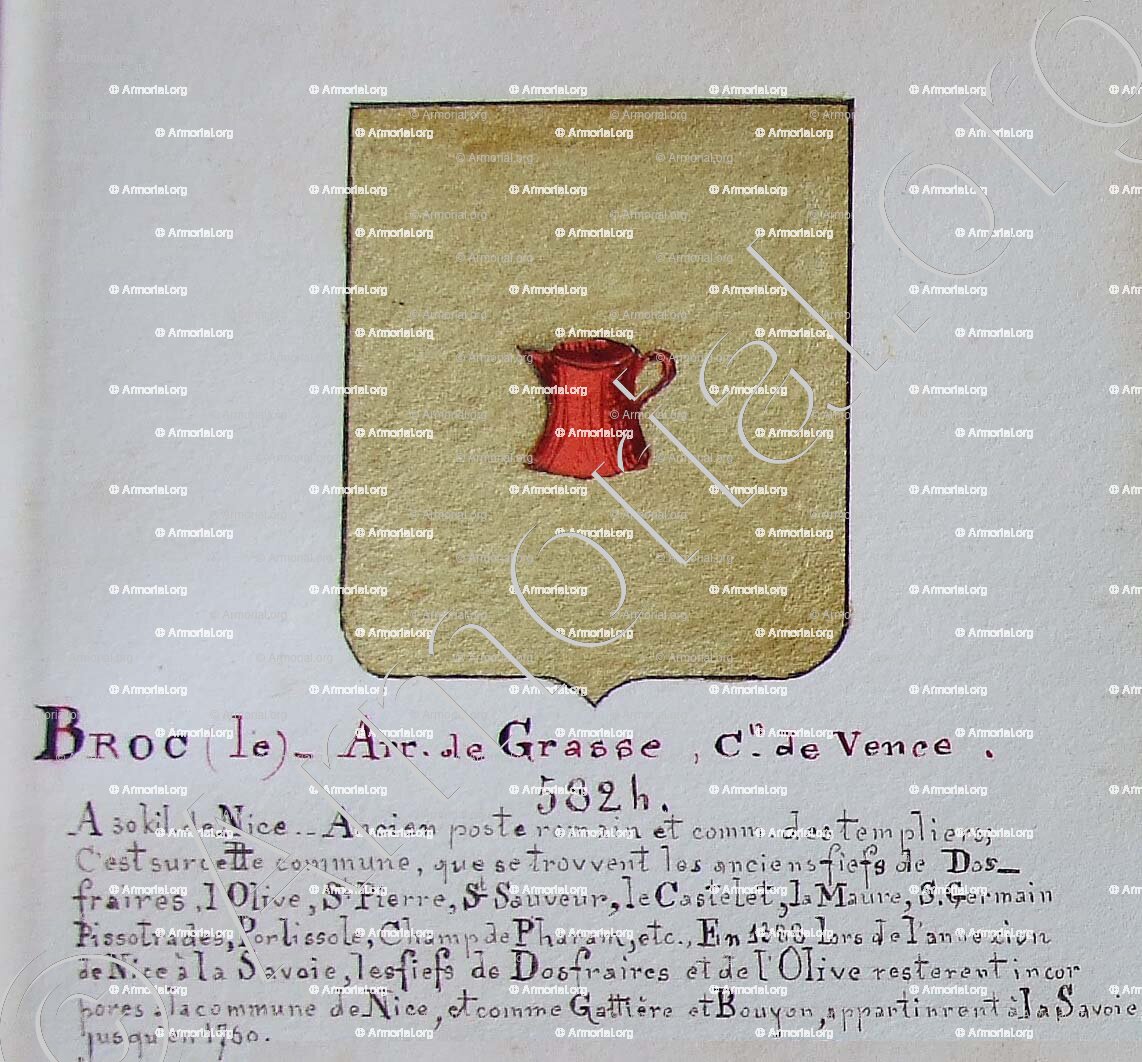 BROC (le) - Arr. de Grasse, Cⁿ. de Vence.
582 h.
A 30 kil. de Nice.- Ancien poste romain et comm. des templiers,
C'est sur cette commune, que se trovvent les anciens fiefs de Dos-
fraires, l'Olive, St Pierre, St Sauveur, le Castelet, la Maure, S. Germain
Pissotrades, Porlissole, Champ de Pharam, etc., En Lors de l'annexion
de Nice à la Savoie, les fiefs de Dosfraires et de l'Olive resterent incor
pores à la commune de Nice, et comme Gattière et Bouyon, appartinrent à la Savoie
jusqu'en 1760.
© Armorial.org